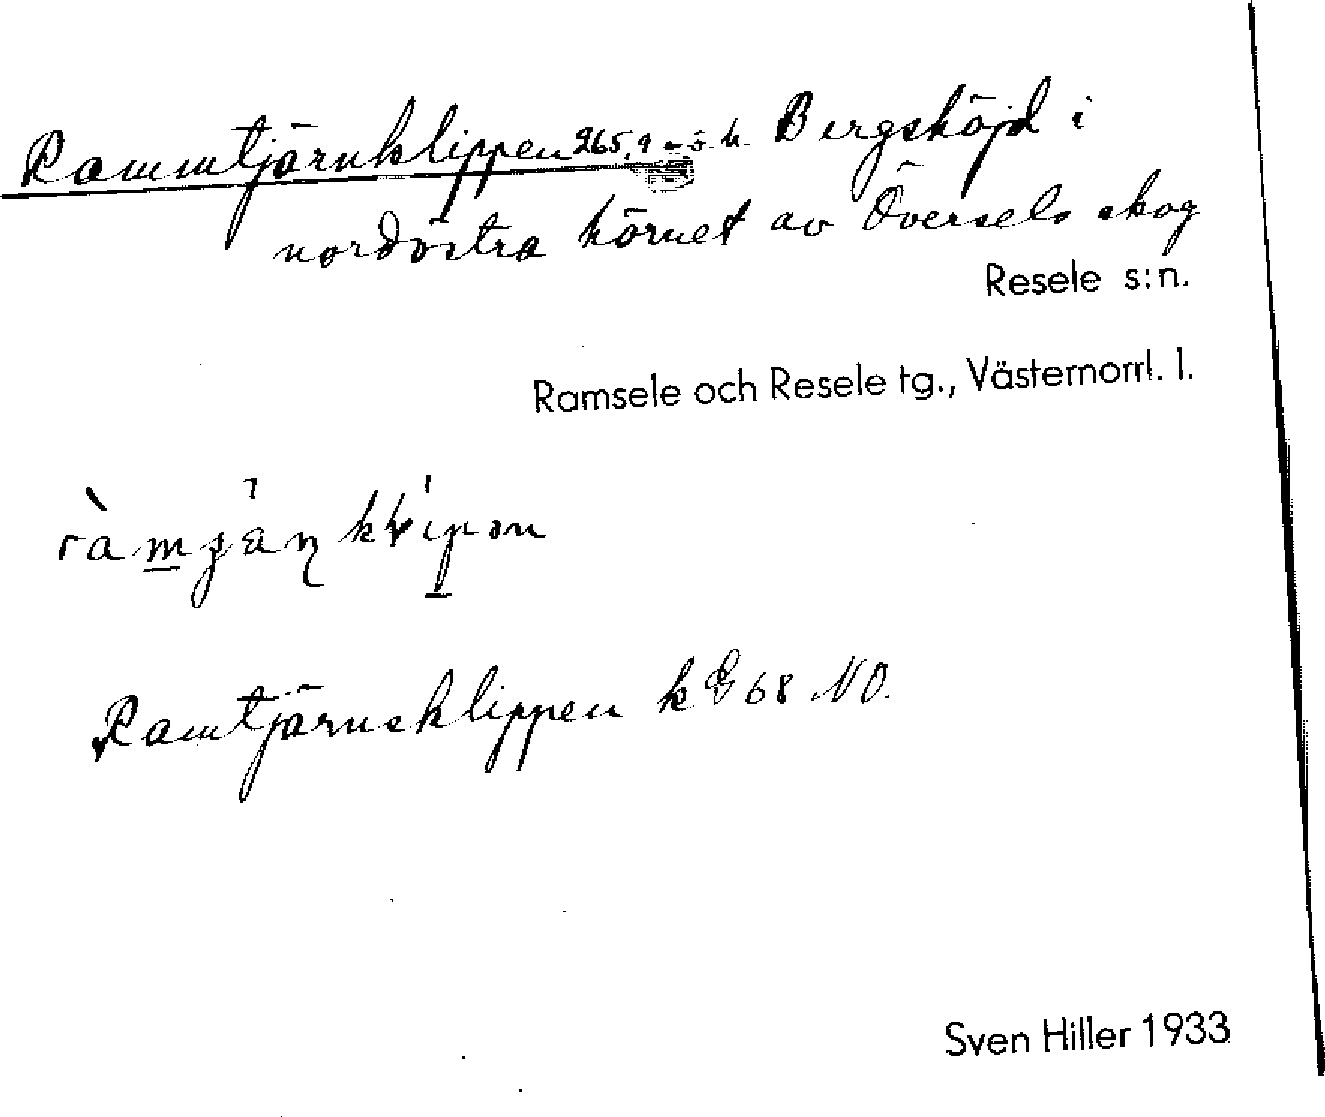 Rammtjärnklippen 265,9 m ö. h. Bergshöjd i
nordöstra hörnet av Översels skog
Resele s:n.
Ramsele och Resele tg., Västernorrl. l.
Ramtjärnsklippen k G 68 NO.
Sven Hiller 1933